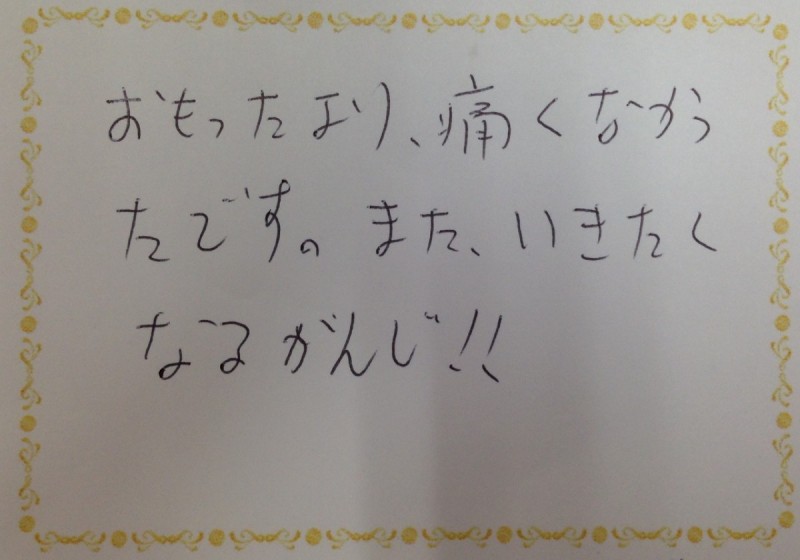 おもったより、痛くなかっ
たです。また、いきたく
なるがんじ!!